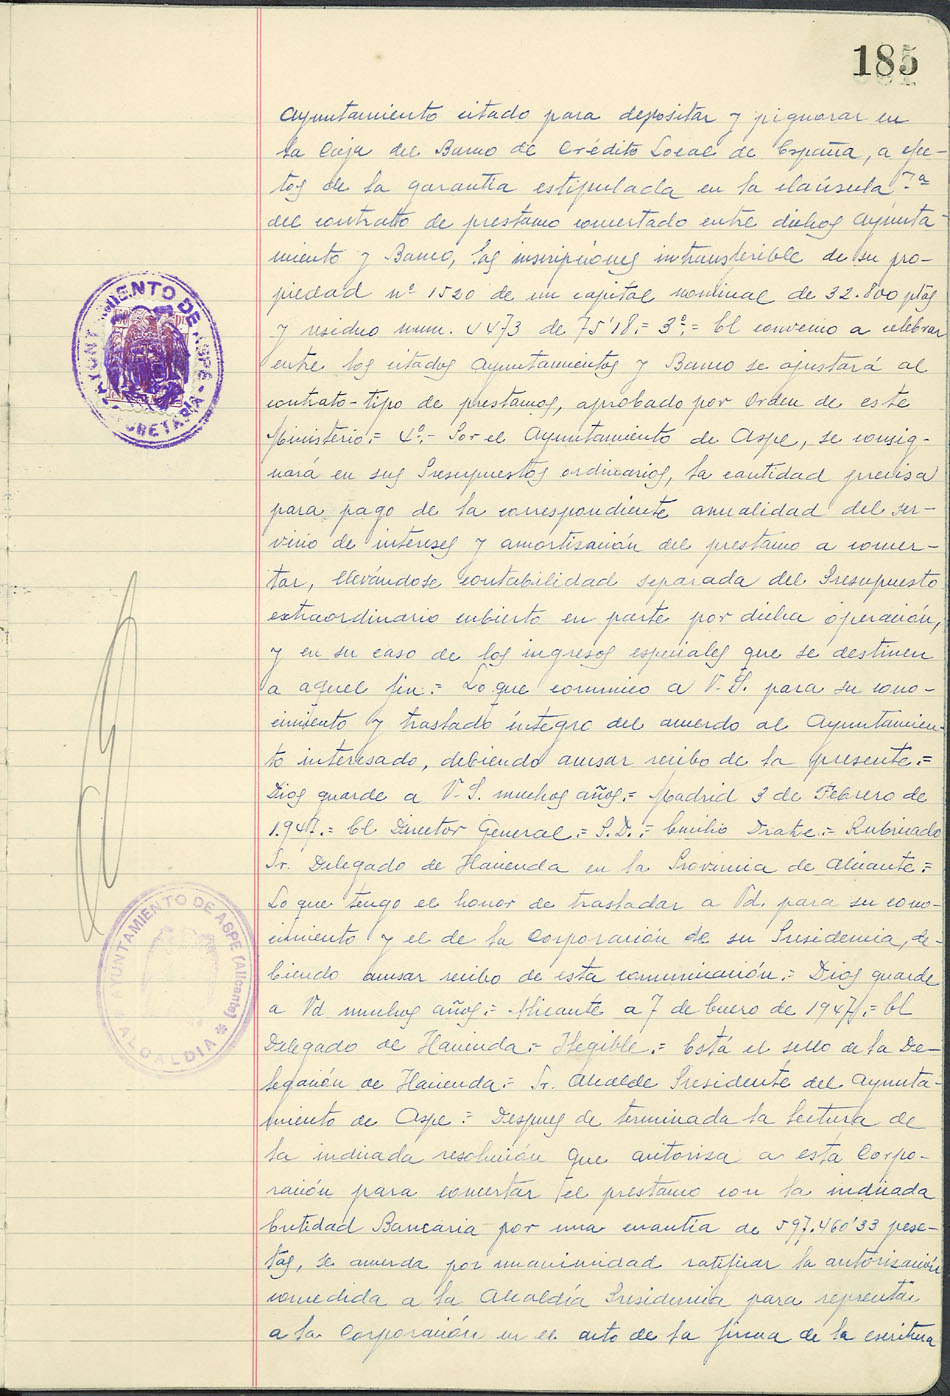 185
Ayuntamiento citado para depositar y pignorar en
la Caja del Banco de Crédito Local de España, a efec-
tos de la garantía estipulada en la claúsula 7ª
del contrato de prestamo concertado entre dichos Ayunta-
miento y Banco, las inscripciones intransferible de su pro-
piedad nº 1520 de un capital nominal de 32.800 ptas
y residuo num. 4473 de 75'18.= 3º.= El convenio a celebrar
entre los citados Ayuntamientos y Banco se ajustará al
contrato-tipo de prestamos, aprobado por Orden de este
Ministerio.= 4º.- Por el Ayuntamiento de Aspe, se consig-
nará en sus Presupuestos ordinarios, la cantidad precisa
para pago de la correspondiente anualidad del ser-
vicio de intereses y amortización del prestamo a concer-
tar, llevándose contabilidad separada del Presupuesto
extraordinario cubierto en parte por dicha operación,
y en su caso de los ingresos especiales que se destinen
a aquel fin.= Lo que comunico a V.S. para su cono-
cimiento y traslado íntegro del acuerdo al Ayuntamien-
to interesado, debiendo acusar recibo de la presente.=
Dios guarde a V.S. muchos años.= Madrid 3 de Febrero de
1.947.= El Director General.= P.D.= Emilio Drake.= Rubricado
Sr. Delegado de Hacienda en la Provincia de Alicante.=
Lo que tengo el honor de trasladar a Vd. para su cono-
cimiento y el de la Corporación de su Presidencia, de-
biendo acusar recibo de esta comunicación.= Dios guarde
a Vd muchos años.= Alicante a 7 de Enero de 1947.= El
Delegado de Hacienda.= Ilegible.= Está el sello de la De-
legación de Hacienda.= Sr. Alcalde Presidente del Ayunta-
miento de Aspe.= Despues de terminada la lectura de
la indicada resolución que autoriza a esta Corpo-
ración para concertar el prestamo con la indicada
Entidad Bancaria por una cuantía de 597.460'33 pese-
tas, se acuerda por unanimidad ratificar la autorización
concedida a la Alcaldía Presidencia para representar
a la Corporación en el acto de la firma de la escritura
AYUNTAMIENTO DE ASPE
SECRETARIA
AYUNTAMIENTO DE ASPE (Alicante)
ALCALDIA